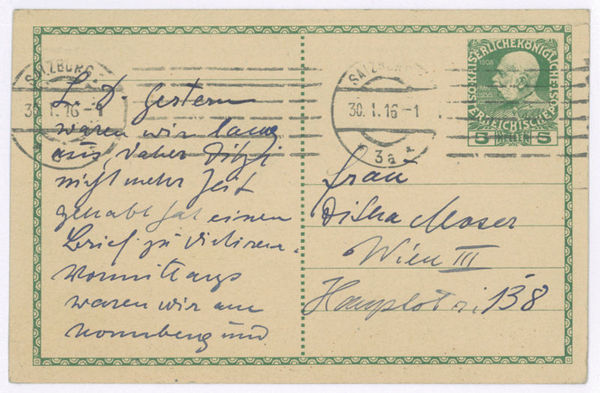 SALZBURG
30. I. 16 - 1
SALZBURG
30. I. 16 - 1
3a
KAISERLICHEKÖNIGLICHE
ÖSTERREICHISCHE POST
5 HELLER 5
L. D. Gestern
waren wir lang
aus, daher Ditzi
nicht mehr Zeit
gehabt hat einen
Brief zu
Vormittags
waren wir am
Nonnberg und
Frau
Ditha Moser
Wien III
Hauptstr. 138